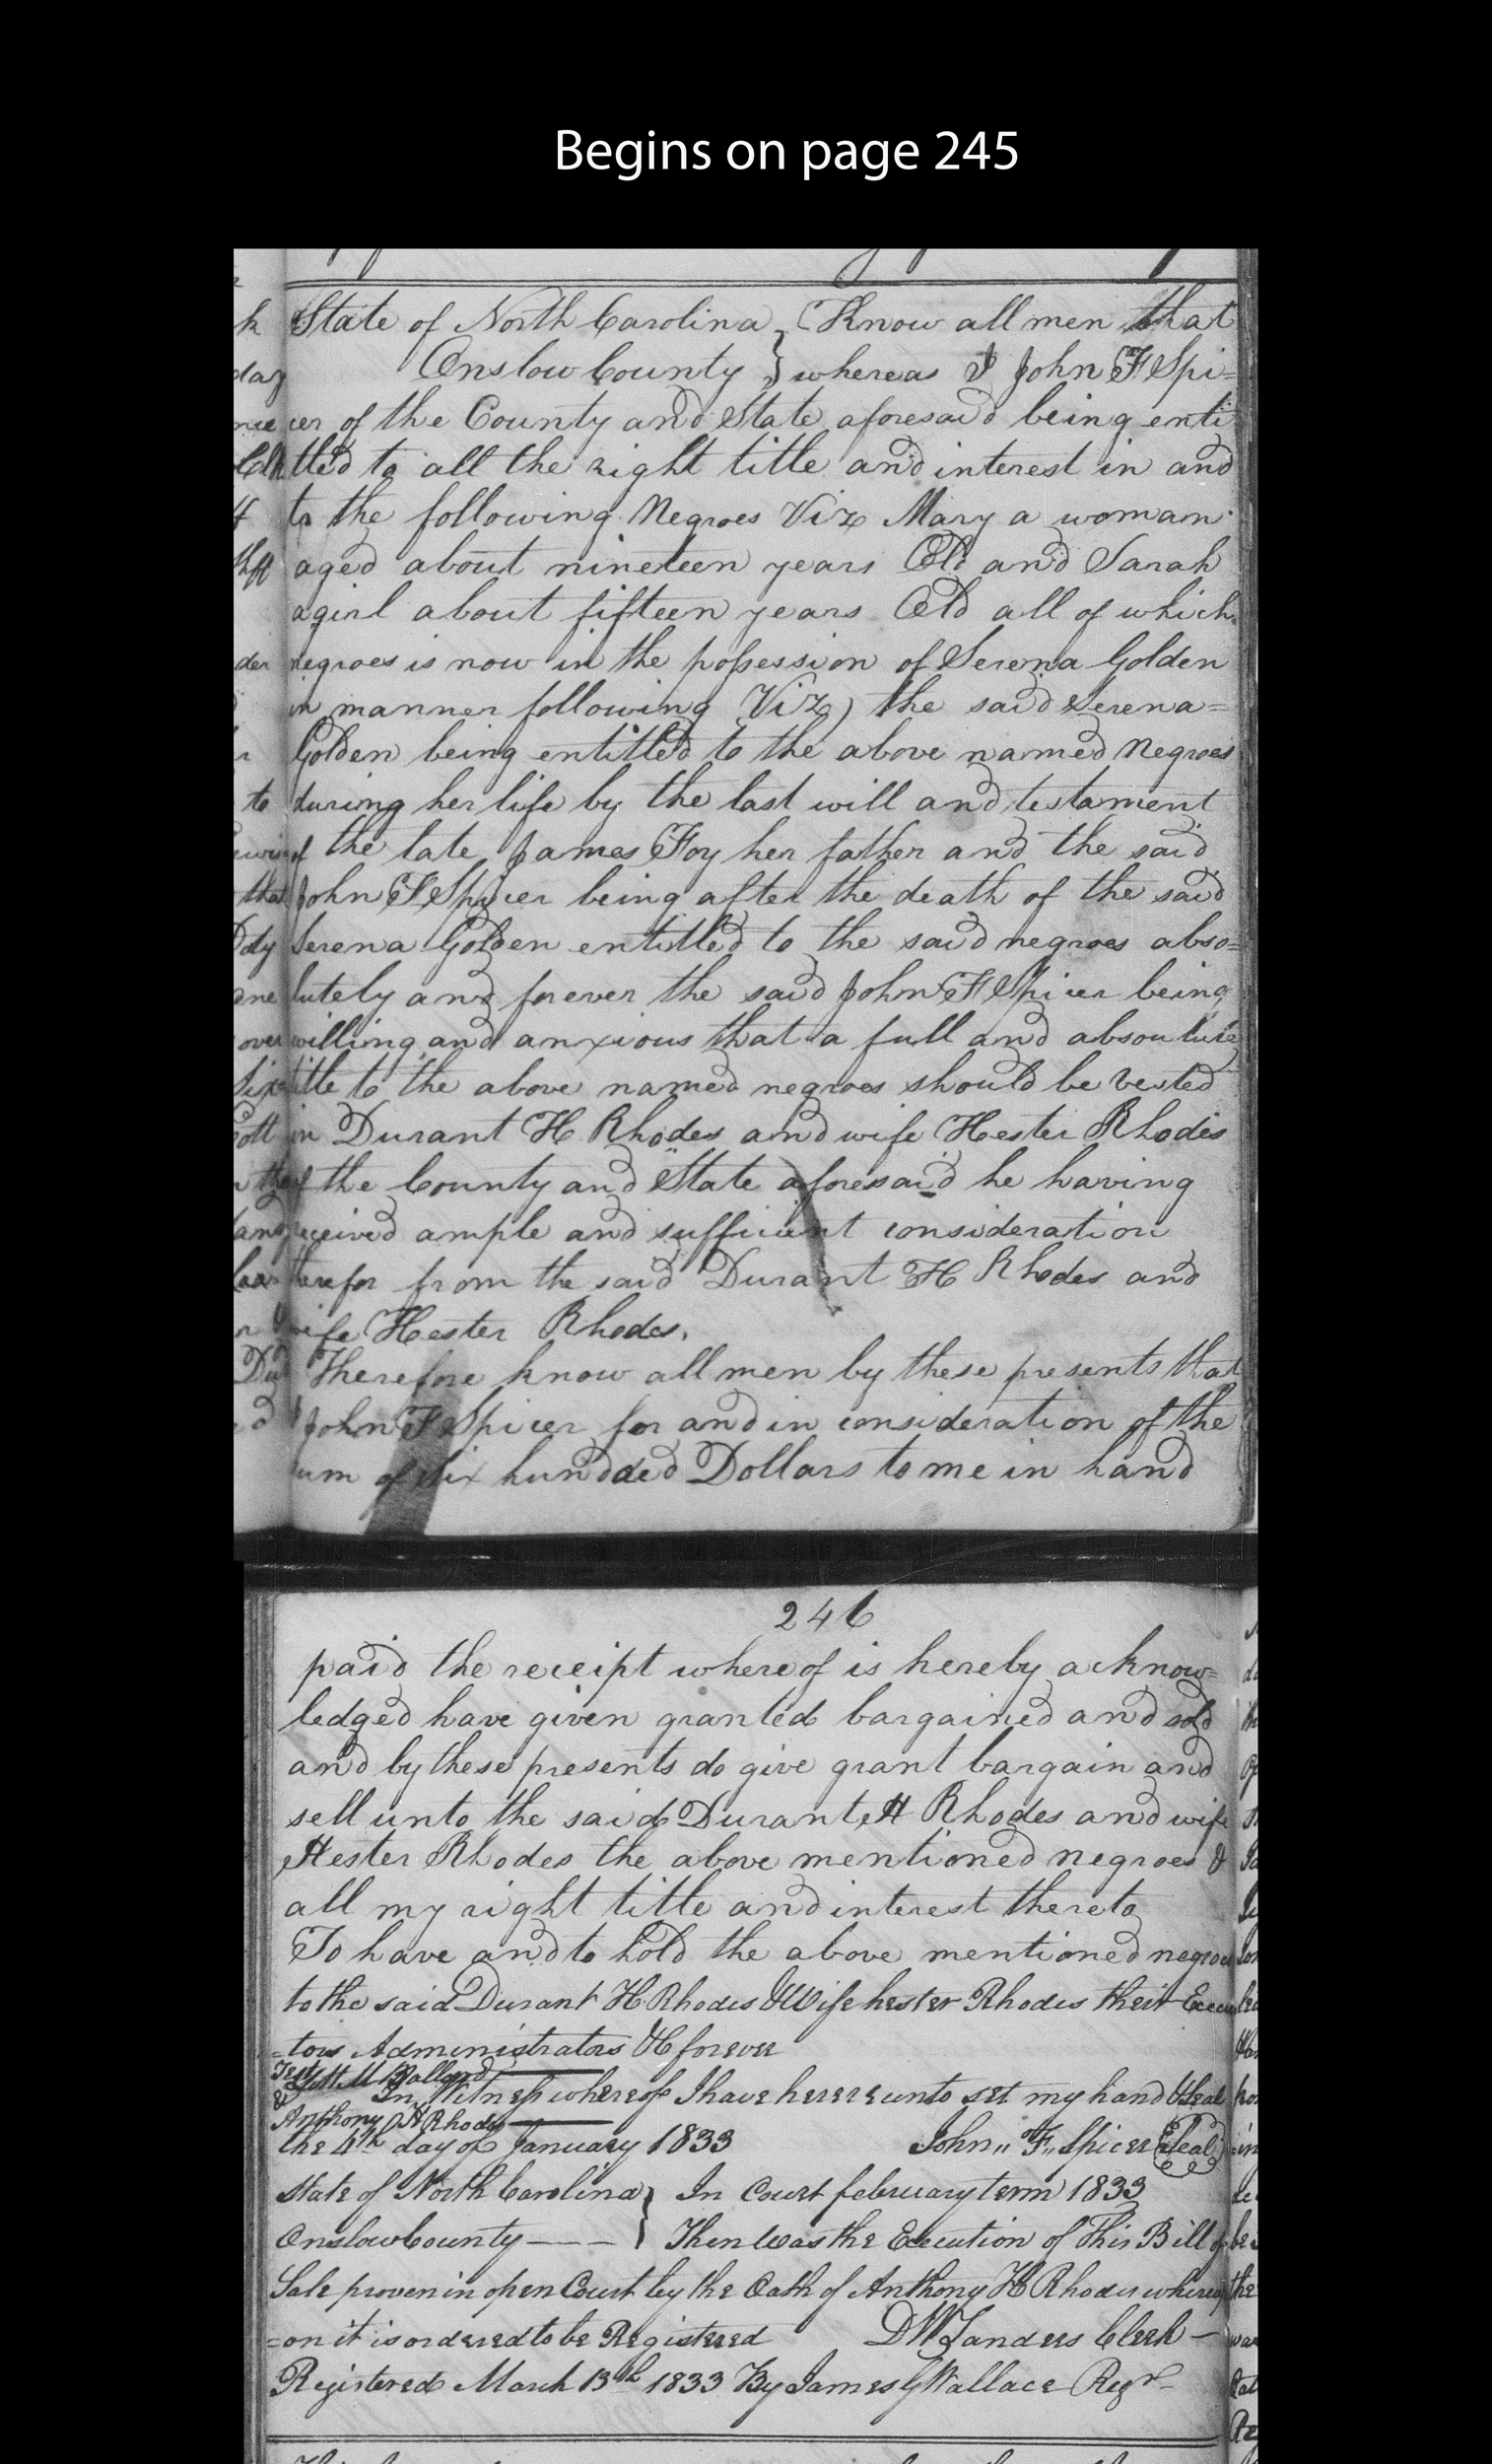 Begins on page 245
State of North Carolina } Know all men that
Onslow County } whereas I John F Spi=
cer of the County and State aforesaid being enti
tled to all the right title and interest in and
to the following Negroes Viz Mary a woman
aged about nineteen years Old and Sarah
a girl about fifteen years Old all of which
negroes is now in the possession of Serena Golden
in manner following Viz) the said Serena=
Golden being entitled to the above named Negroes
during her life by the last will and testament
of the late James Foy her father and the said
John F Spicer being after the death of the said
Serena Golden entitled to the said negroes abso=
lutely and forever the said John F Spicer being
willing and anxious that a full and absoulute
title to the above named negroes should be vested
in Durant H Rhodes and wife Hester Rhodes
of the County and State aforesaid he having
received ample and sufficient consideration
therefor from the said Durant H Rhodes and
wife Hester Rhodes.
Therefore know all men by these presents that
I John F Spicer for and in consideration of the
sum of six hundded Dollars to me in hand
246
paid the receipt whereof is hereby acknow=
ledged have given granted bargained and sold
and by these presents do give grant bargain and
sell unto the said Durant H Rhodes and wife
Hester Rhodes the above mentioned negroes &
all my right title and interest thereto
To have and to hold the above mentioned negroes
to the said Durant H Rhodes & Wife hester Rhodes their Execu
=tors Administrators &c forever
Test M Ballard
In Witness whereof I have herereunto set my hand & seal
& Anthony H Rhodes
the 4th day of January 1833 John „ F „ Spicer (Seal)
State of North Carolina } In Court february term 1833
Onslow County --- } Then Was the Execution of This Bill of
Sale proven in open Court by the Oath of Anthony H Rhodes whereup
=on it is ordered to be Registered D W Sanders Clerk -
Registered March 13th 1833 By James G Wallace Regr